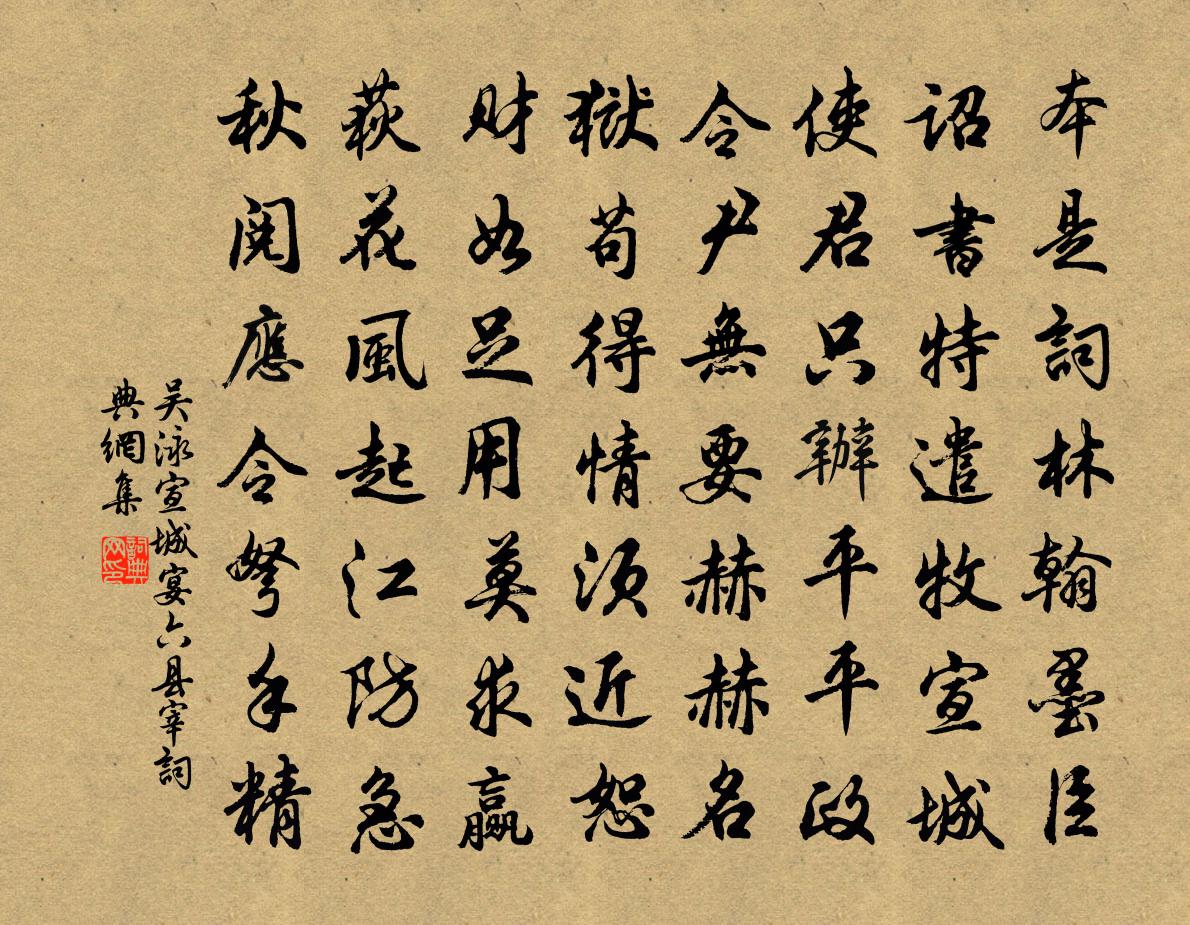 本是詞林翰墨臣
詔書特遣牧宣城
使君只辦平平政
令尹無要赫赫名
獄苟得情須近恕
財如足用莫求赢
荻花風起江防急
秋閱應令弩手精
吴泳宣城宴六县宰詞
典網集
詞典
网印